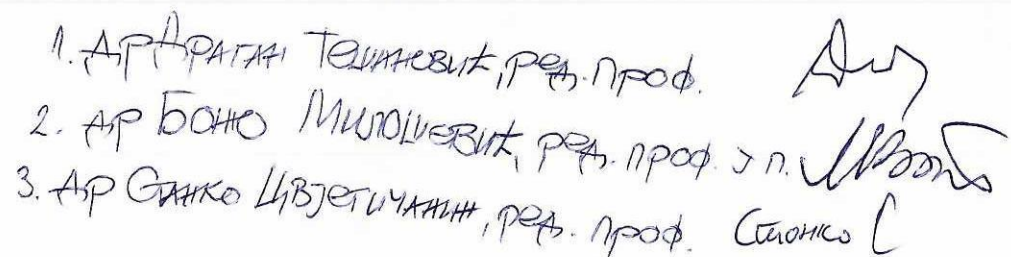 1. др Драган Тешановић, ред. проф.
2. др Божо Милошевић, ред. проф. у п.
3. др Станко Цвјетичанин, ред. проф. Станко С